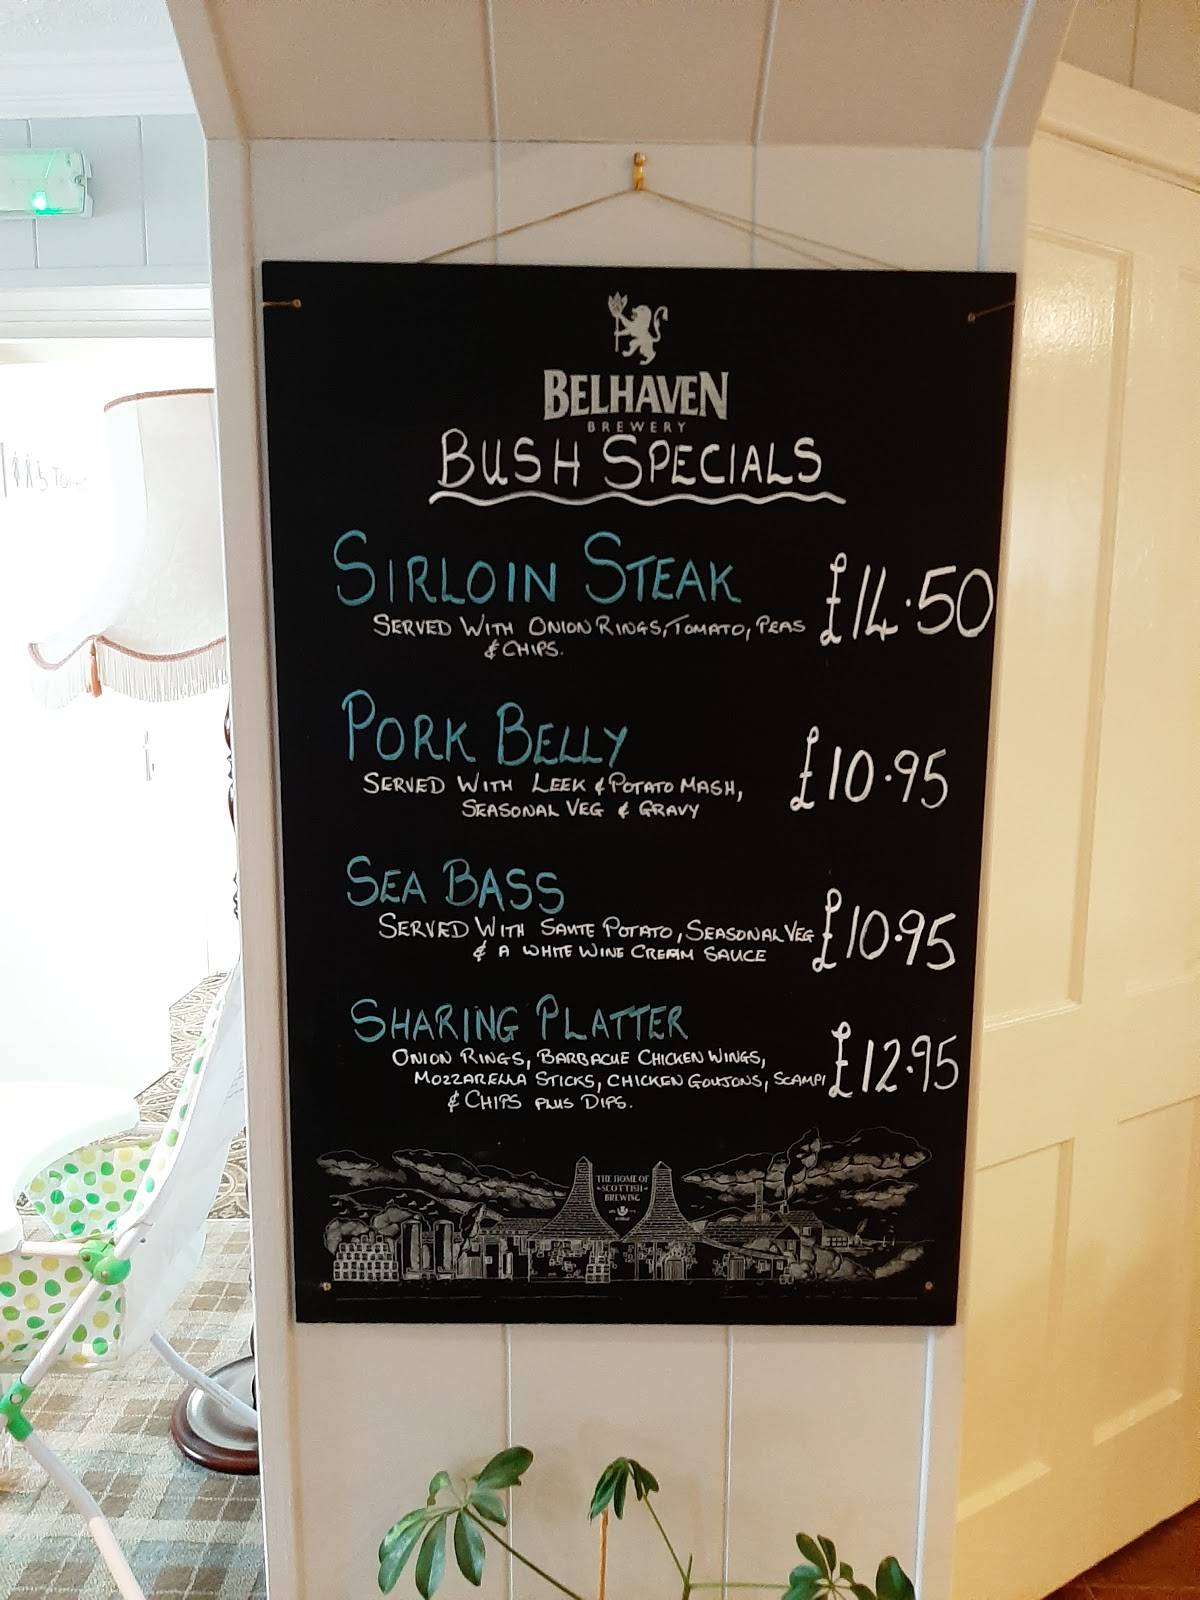 Toilets
BELHAVEN
BREWERY
BUSH SPECIALS
SIRLOIN STEAK £14.50
SERVED WITH ONION RINGS, TOMATO, PEAS
& CHIPS.
PORK BELLY £10.95
SERVED WITH LEEK & POTATO MASH,
SEASONAL VEG & GRAVY
SEA BASS £10.95
SERVED WITH SAUTE POTATO, SEASONAL VEG
& A WHITE WINE CREAM SAUCE
SHARING PLATTER £12.95
ONION RINGS, BARBACUE CHICKEN WINGS,
MOZZARELLA STICKS, CHICKEN GOUJONS, SCAMPI
& CHIPS PLUS DIPS.
THE HOME OF
SCOTTISH
BREWING